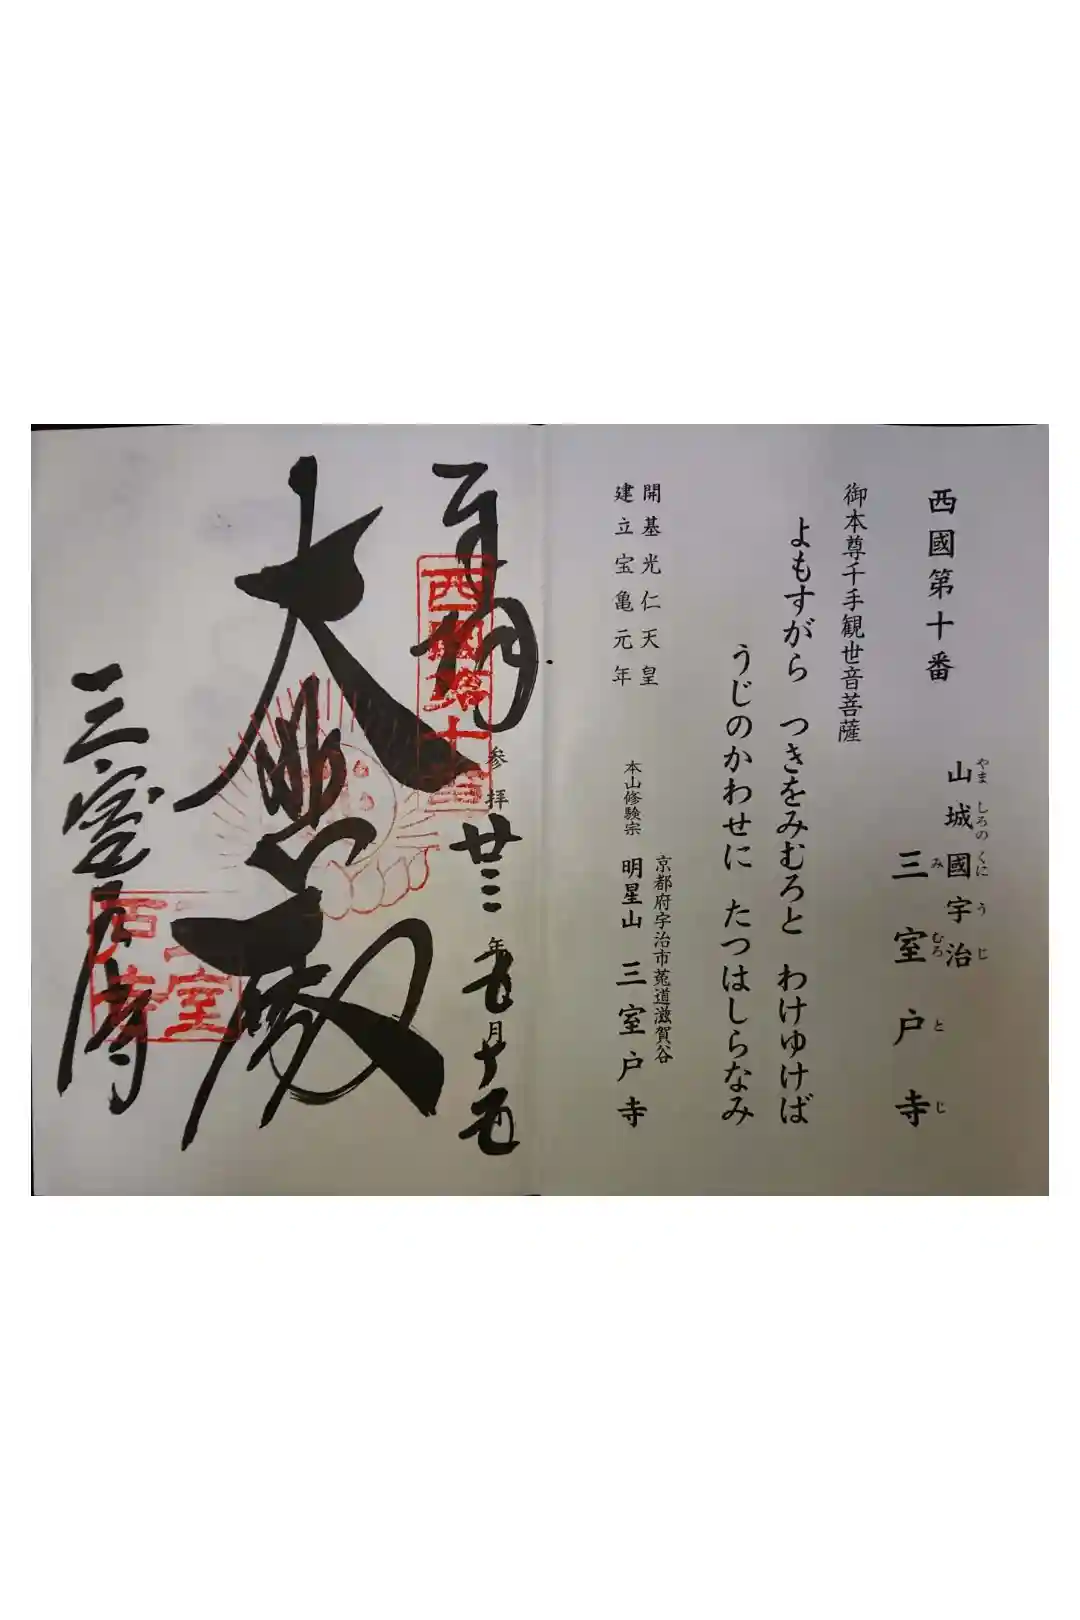 西國第十番
山城國宇治
やましろのくにうじ
三室戸寺
みむろとじ
御本尊千手観世音菩薩
よもすがら つきをみむろと わけゆけば
うじのかわせに たつはしらなみ
開基光仁天皇
建立宝亀元年
京都府宇治市莵道滋賀谷
本山修験宗 明星山 三室戸寺
奉拝
西國第十番
参拝廿三年五月十五
大悲殿
三室戸寺
三室戸寺